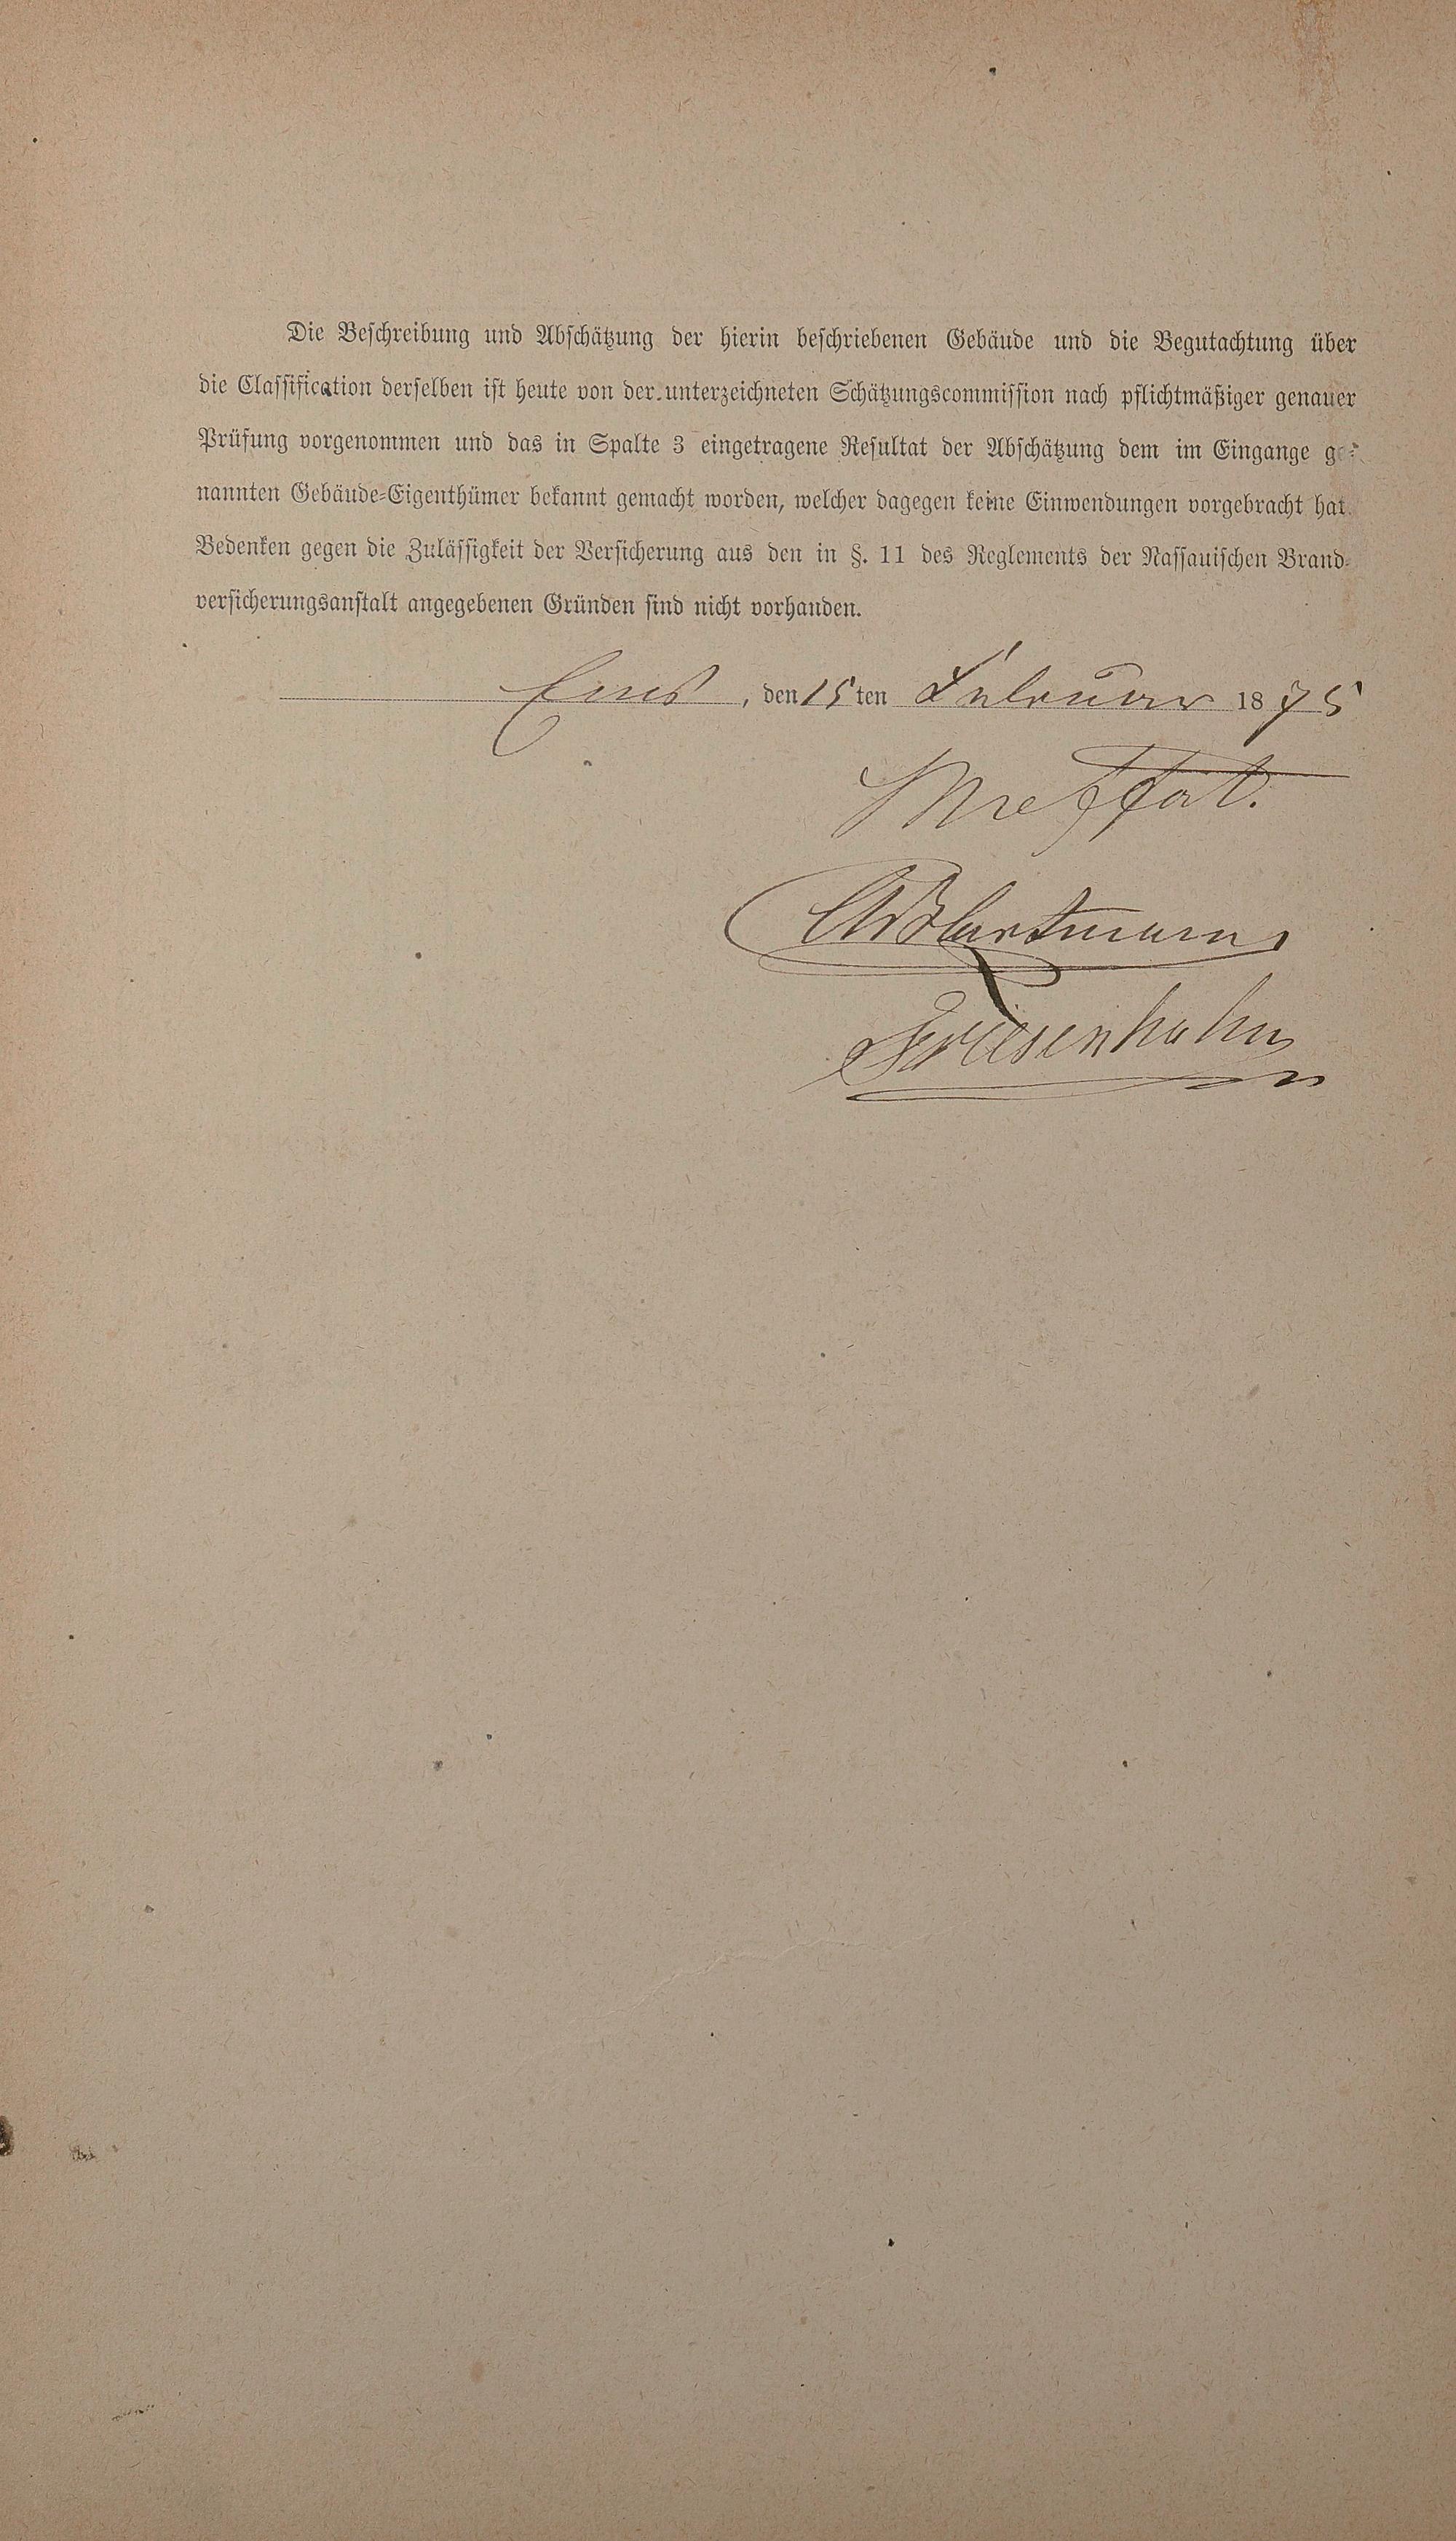 Die Beschreibung und Abschätzung der hierin beschriebenen Gebäude und die Begutachtung über
die Classification derselben ist heute von der unterzeichneten Schätzungscommission nach pflichtmäßiger genauer
Prüfung vorgenommen und das in Spalte 3 eingetragene Resultat der Abschätzung dem im Eingange ge-
nannten Gebäude-Eigenthümer bekannt gemacht worden, welcher dagegen keine Einwendungen vorgebracht hat.
Bedenken gegen die Zulässigkeit der Versicherung aus den in §. 11 des Reglements der Nassauischen Brand-
versicherungsanstalt angegebenen Gründen sind nicht vorhanden.
Ems, den 15ten Februar 1875
Friesenhahn